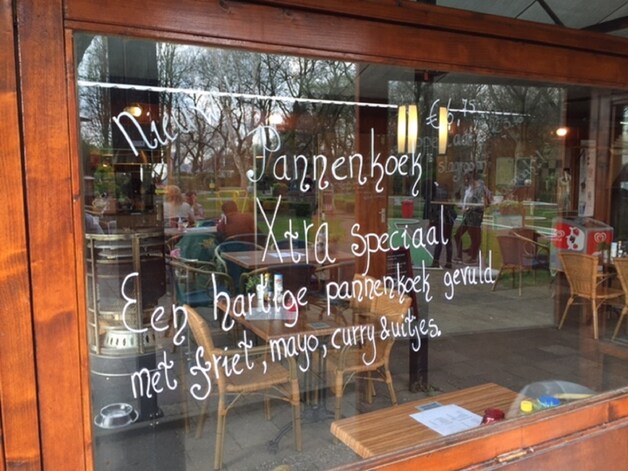 Nieuw
€6,75
Pannenkoek
Xtra speciaal
Een hartige pannenkoek gevuld
met friet, mayo, curry & uitjes.